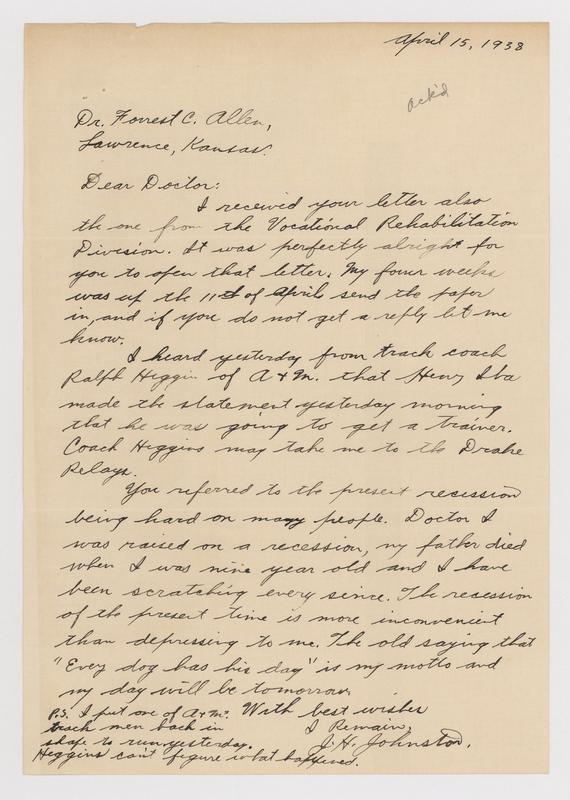 April 15, 1938
ack'd
Dr. Forrest C. Allen,
Lawrence, Kansas.
Dear Doctor:
I received your letter also
the one from the Vocational Rehabilitation
Division. It was perfectly alright for
you to open that letter. My four weeks
was up the 11th of April send the paper
in, and if you do not get a reply let me
know.
I heard yesterday from track coach
Ralph Higgin of A + M. that Henry Iba
made the statement yesterday morning
that he was going to get a trainer.
Coach Higgins may take me to the Drake
Relays.
You referred to the present recession
being hard on many people. Doctor I
was raised on a recession, my father died
when I was nine year old and I have
been scratching every since. The recession
of the present time is more inconvenient
than depressing to me. The old saying that
"Every dog has his day" is my motto and
my day will be tomorrow.
With best wishes
I Remain,
J. H. Johnston.
P.S. I put one of A+M's
track men back in
shape to run yesterday.
Higgins can't figure what happened.